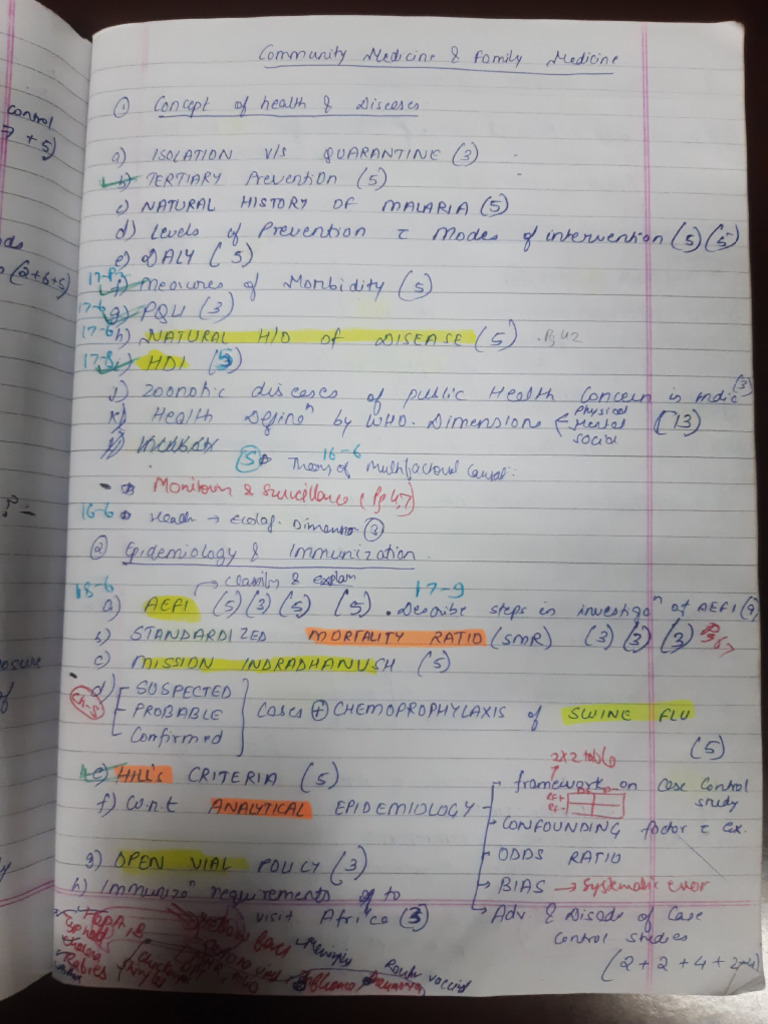 control
→ + 5)
(2+6+5)
Community Medicine & Family Medicine
① Concept of health & Diseases
a) ISOLATION v/s QUARANTINE (3)
b) TERTIARY Prevention (5)
c) NATURAL HISTORY OF MALARIA (5)
d) Levels of Prevention c̄ Modes of intervention (5) (5)
e) DALY (5)
17-8 f) Measures of Morbidity (5)
17-6 g) PQLI (3)
17-6 h) NATURAL H/O of DISEASE (5) . Pg 42
17-8 i) HDI (5)
j) Zoonotic diseases of public Health Concern in India (3)
k) Health Defineⁿ by WHO. Dimensions < Physical Mental Social (13)
⑤ Theory of Multifactorial Causal. 16-6
Monitoring & Surveillance (Pg 47)
16-6 Health → Ecolog. Dimension ③
② Epidemiology & Immunization
→ classify & explain
18-6 a) AEFI (5) (3) (5) (5) . Describe steps in investigaⁿ of AEFI (9) 17-9
b) STANDARDIZED MORTALITY RATIO (SMR) (3) (3) (3) Pg 67
c) MISSION INDRADHANUSH (5)
Ch-5 d) SUSPECTED
PROBABLE
Confirmed
Cases ⊕ CHEMOPROPHYLAXIS of SWINE FLU (5)
e) HILL's CRITERIA (5)
f) w.r.t ANALYTICAL EPIDEMIOLOGY
2x2 table
framework on Case Control study
CONFOUNDING factor c̄ ex.
ODDS RATIO
BIAS → Systematic error
Adv & Disadv of Case Control studies
(2 + 2 + 4 + 2+4)
g) OPEN VIAL POLICY (3)
h) Immunizⁿ requirements to visit Africa (3)
Typhoid
Cholera
Rabies